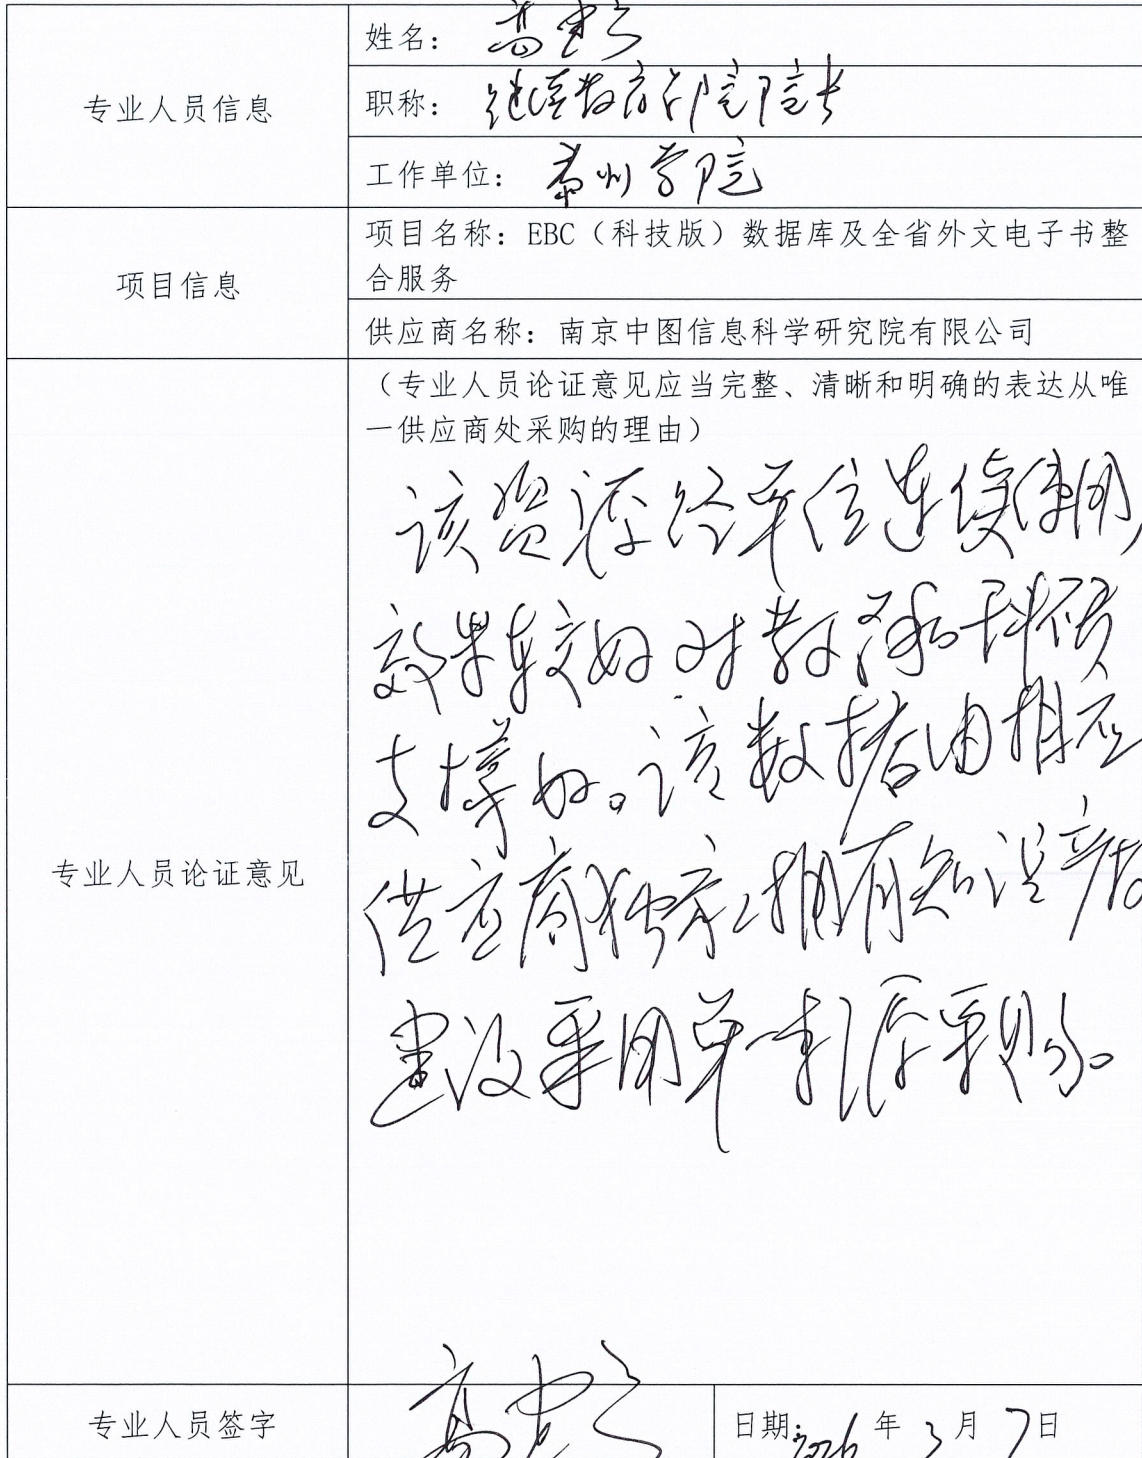 专业人员信息
姓名：高
职称：继续教育学院院长
工作单位：常州学院
项目信息
项目名称：EBC（科技版）数据库及全省外文电子书整
合服务
供应商名称：南京中图信息科学研究院有限公司
专业人员论证意见
（专业人员论证意见应当完整、清晰和明确的表达从唯
一供应商处采购的理由）
该资源经单位连续使用，
效果较好对教学和科研
支撑好。该数据由相应
供应商独家拥有知识产权
建议采用单一来源采购。
专业人员签字
高
日期：2026年3月7日